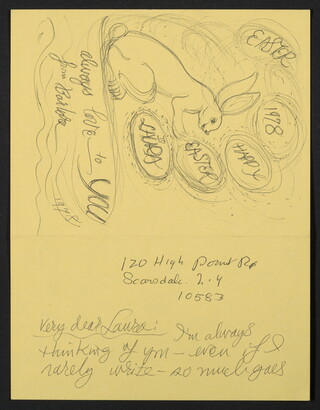 EASTER
1978
HAPPY
EASTER
LAURA
always love to YOU
from Barbara
1978
120 High Point Rd
Scarsdale N.Y
10583
Very dear Laura: I'm always
thinking of you – even if I
rarely write – so much goes